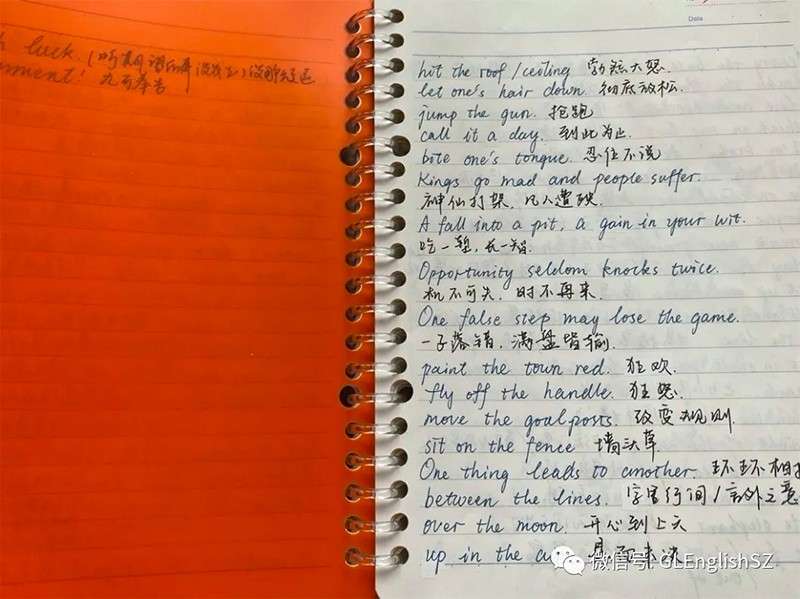 h luck. (
nment! 九百奉告
Date
hit the roof/ceiling 勃然大怒.
let one's hair down. 彻底放松.
jump the gun. 抢跑
call it a day. 到此为止.
bite one's tongue. 忍住不说
Kings go mad and people suffer.
神仙打架, 凡人遭殃.
A fall into a pit, a gain in your wit.
吃一堑, 长一智.
Opportunity seldom knocks twice.
机不可失, 时不再来.
One false step may lose the game.
一子落错, 满盘皆输.
paint the town red. 狂欢.
fly off the handle. 狂怒.
move the goalposts. 改变规则.
sit on the fence 墙头草.
One thing leads to another. 环环相扣
between the lines. 字里行间/言外之意
over the moon. 开心到上天
up in the a
微信号: GLEnglishSZ